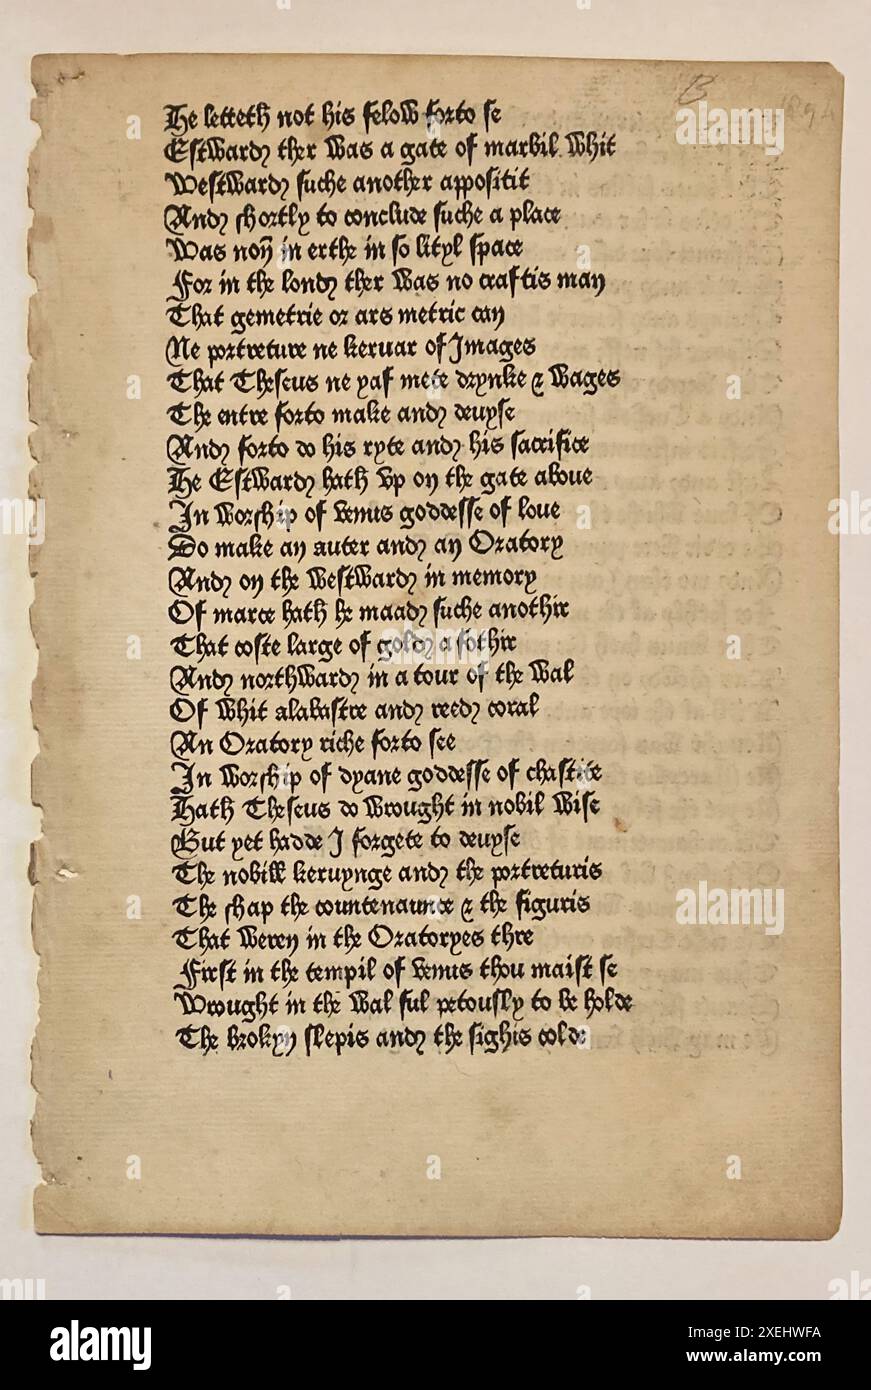 B
189
He letteth not his felow forto se
Estward ther was a gate of marbil whit
Westward suche another apposit
And shortly to conclude suche a place
Was non̄ in erthe in so lityl space
For in the lond ther was no craftis man
That gemetrie or ars metric can
Ne portreture ne keruar of Images
That Theseus ne yaf mete drynke & wages
The entre forto make and deuyse
And forto do his ryte and his sacrifice
He Estward hath vp on the gate aboue
In worship of venus goddesse of loue
Do make an auter and an Oratory
And on the westward in memory
Of marce hath he maad suche anothir
That coste large of gold a fothir
And northward in a tour of the wal
Of whit alabastre and reed coral
An Oratory riche forto see
In worship of dyane goddesse of chastite
Hath Theseus do wrought in nobil wise
But yet hadde I forgete to deuyse
The nobill keruynge and the portreturis
The shap the countenaunce & the figuris
That weren in the Oratoryes thre
First in the tempil of venus thou maist se
Wrought in the wal ful petously to be holde
The brokyn slepis and the sighis colde
alamy
Image ID: 2XEHWFA
www.alamy.com